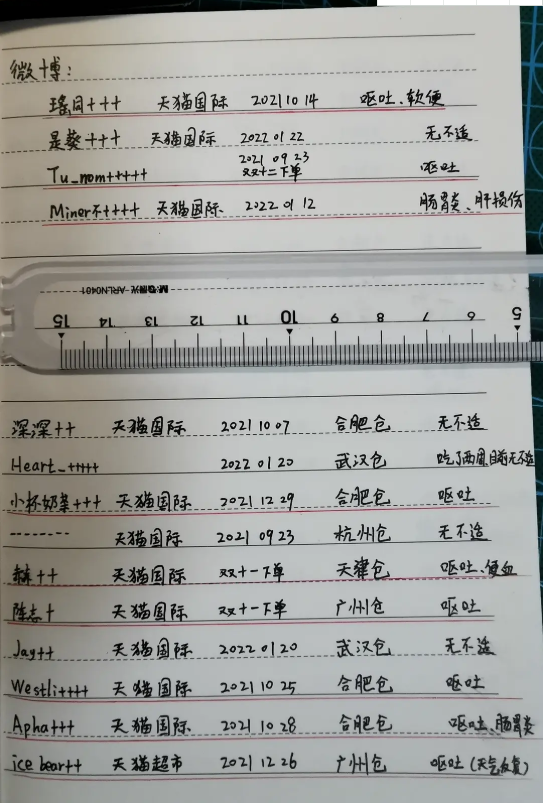 微博:
瑤同+++ 天猫国际 20211014 呕吐、软便
是葵+++ 天猫国际 20220122 无不适
Tu_nom+++++ 20210923 双十二下单 呕吐
Miner不++++ 天猫国际 20220112 肠胃炎、肝损伤
M&G晨光 ARLN0401
15 14 13 12 11 10 9 8 7 6 5
深深++ 天猫国际 20211007 合肥仓 无不适
Heart_+++++ 20220120 武汉仓 吃了两周,目前无不适
小杯奶茶+++ 天猫国际 20211229 合肥仓 呕吐
-------- 天猫国际 20210923 杭州仓 无不适
++ 天猫国际 双十一下单 天津仓 呕吐、便血
陈志+ 天猫国际 双十一下单 广州仓 呕吐
Jay++ 天猫国际 20220120 武汉仓 无不适
Westli++++ 天猫国际 20211025 合肥仓 呕吐
Apha+++ 天猫国际 20211028 合肥仓 呕吐、肠胃炎
ice bear++ 天猫超市 20211226 广州仓 呕吐(天气反复)